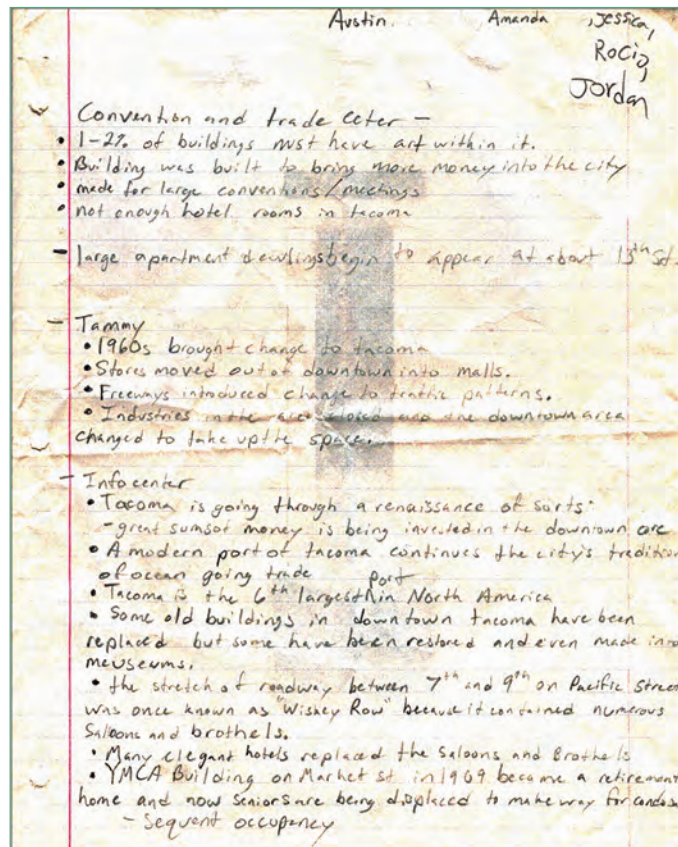 Austin. Amanda , Jessica,
Rocio,
Jordan
Convention and trade ceter –
• 1-2% of buildings must have art within it.
• Building was built to bring more money into the city
• made for large conventions/meetings
• not enough hotel rooms in tacoma
– large apartment dewlings begin to appear at about 13th St.
– Tammy
• 1960s brought change to tacoma
• Stores moved out of downtown into malls.
• Freeways introduced change to traffic patterns.
• Industries in the area closed and the downtown area
changed to take up the space.
– Info center
• Tacoma is going through a renaissance of sorts:
– great sums of money is being invested in the downtown are
• A modern port of tacoma continues the city's tradition
of ocean going trade
• Tacoma is the 6th largest port in North America
• Some old buildings in downtown tacoma have been
replaced but some have been restored and even made into
meuseums.
• the stretch of roadway between 7th and 9th on Pacific Street
was once known as "Wiskey Row" because it contained numerous
Saloons and brothels.
• Many elegant hotels replaced the Saloons and Brothels
• YMCA Building on Market st in 1909 became a retirement
home and now seniors are being displaced to make way for condos
– Sequent occupancy